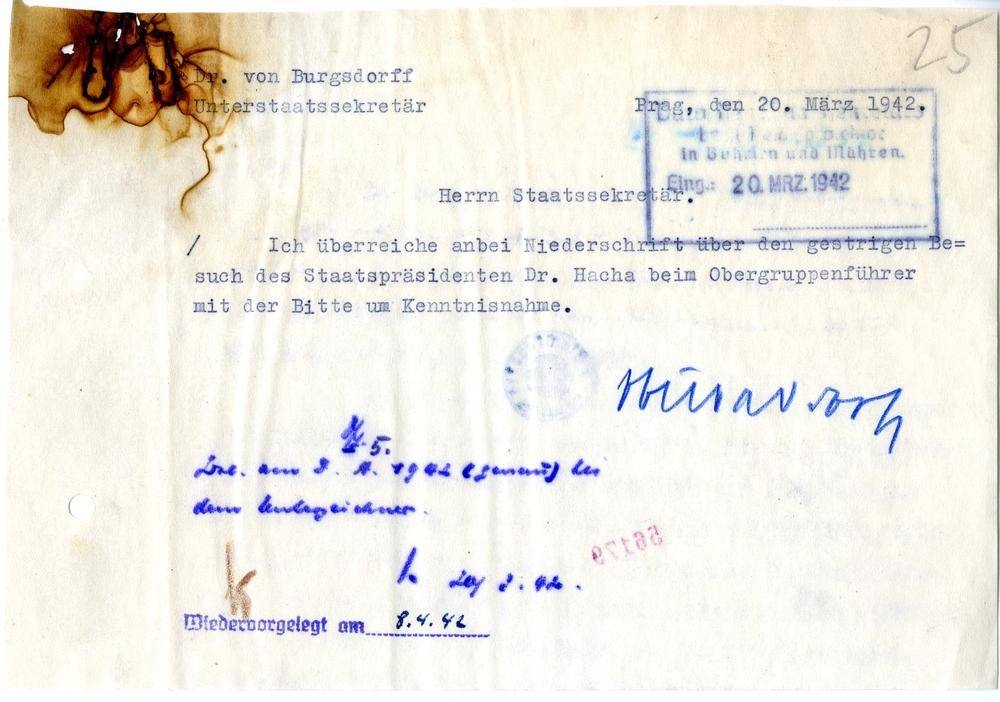 25
Dr. von Burgsdorff
Unterstaatssekretär
Prag, den 20. März 1942.
in Böhmen und Mähren.
Eing.: 20. MRZ. 1942
Herrn Staatssekretär.
/ Ich überreiche anbei Niederschrift über den gestrigen Be=
such des Staatspräsidenten Dr. Hacha beim Obergruppenführer
mit der Bitte um Kenntnisnahme.
5.
1942 (genau) bei
dem Unterzeichner.
56179
Wiedervorgelegt am 8.4.42